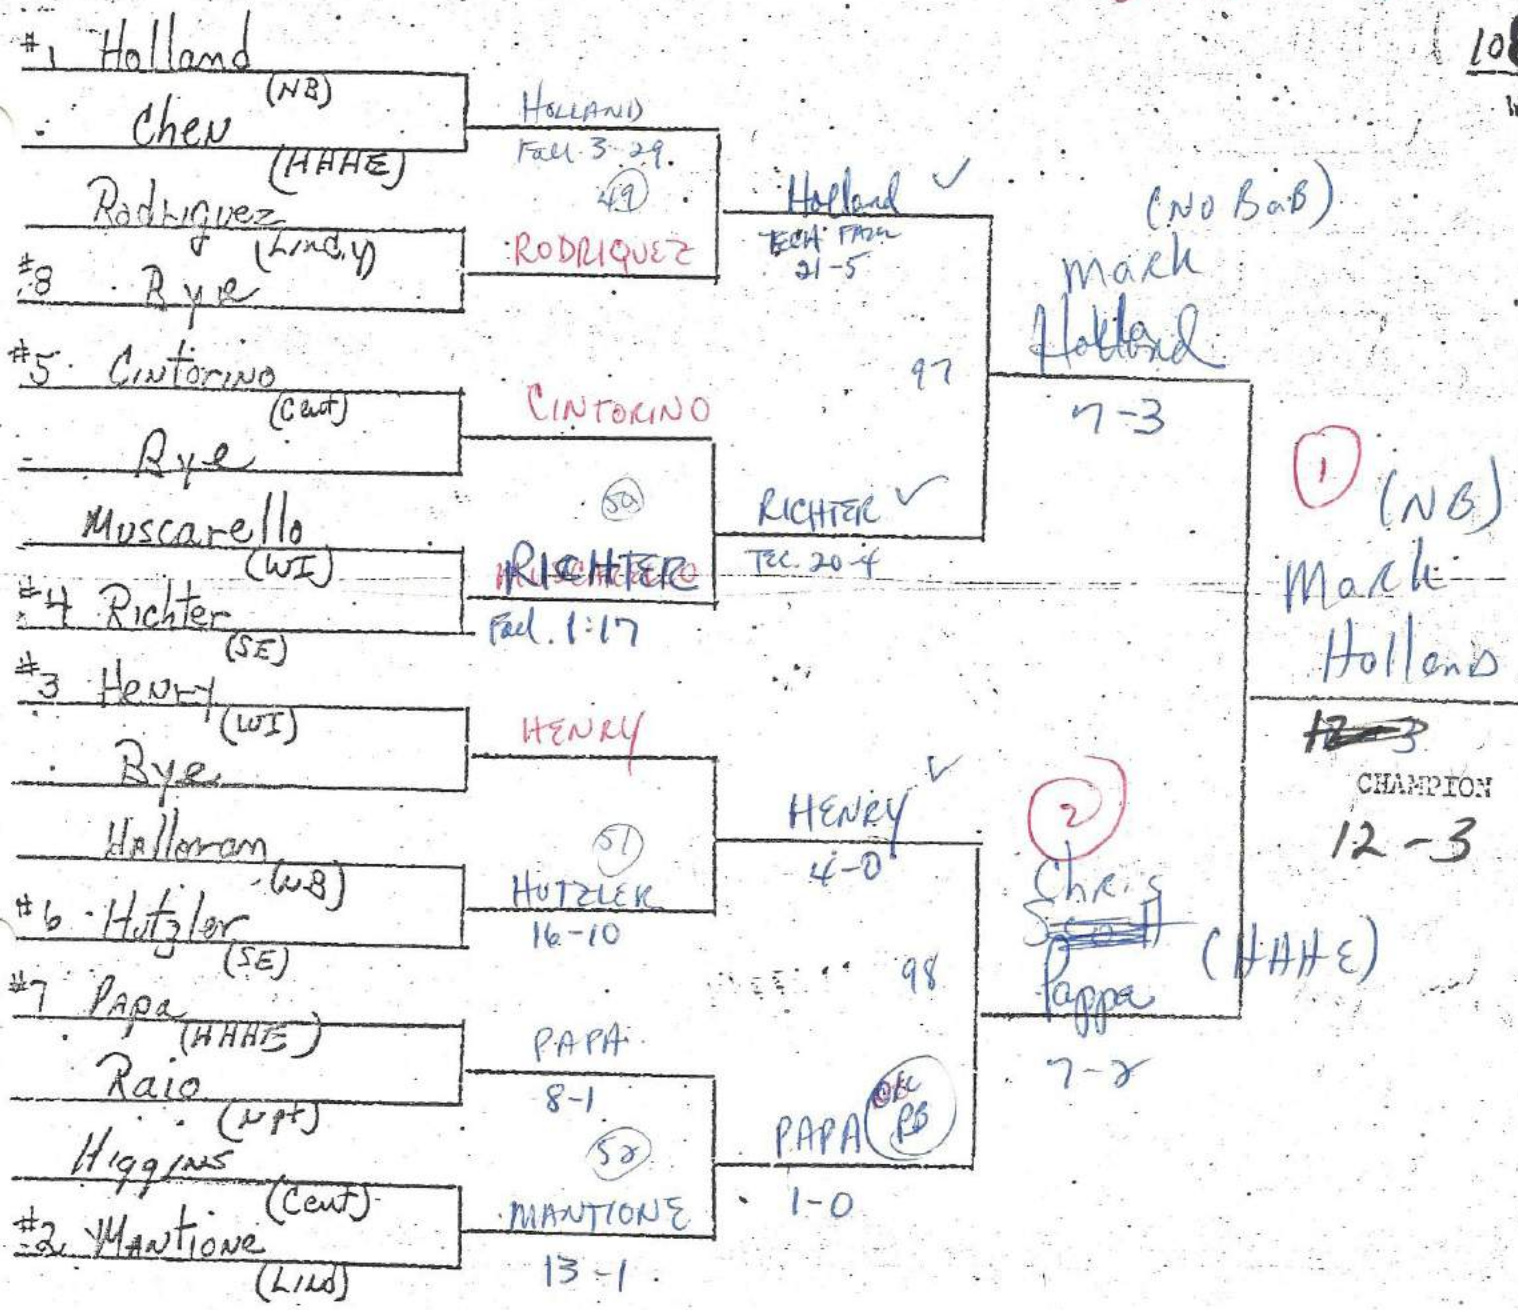 #1 Holland
(NB)
Chen
(HAHE)
Rodriguez
(Lind.y)
#8 Bye
#5 Cintorino
(Cent)
Bye
Muscarello
(WI)
#4 Richter
(SE)
#3 Henry
(WI)
Bye
Halloran
(NB)
#6 Hutzler
(SE)
#7 Papa
(HAHE)
Raio
(Npt)
Higgins
(Cent)
#2 Mantione
(Lind)
HOLLAND
Fall 3-29
49
RODRIQUEZ
CINTORINO
50
RICHTER
Fall. 1:17
HENRY
51
HUTZLER
16-10
PAPA
8-1
52
MANTIONE
13-1
Holland ✓
TECH FALL
21-5
97
RICHTER ✓
TEC. 20-4
HENRY ✓
4-0
98
PAPA
OK
PB
1-0
(NO BAB)
Mark
Holland
7-3
2
Chris
Scott
Pappa
(HAHE)
7-2
10
1
(NB)
Mark
Holland
12-3
CHAMPION
12-3